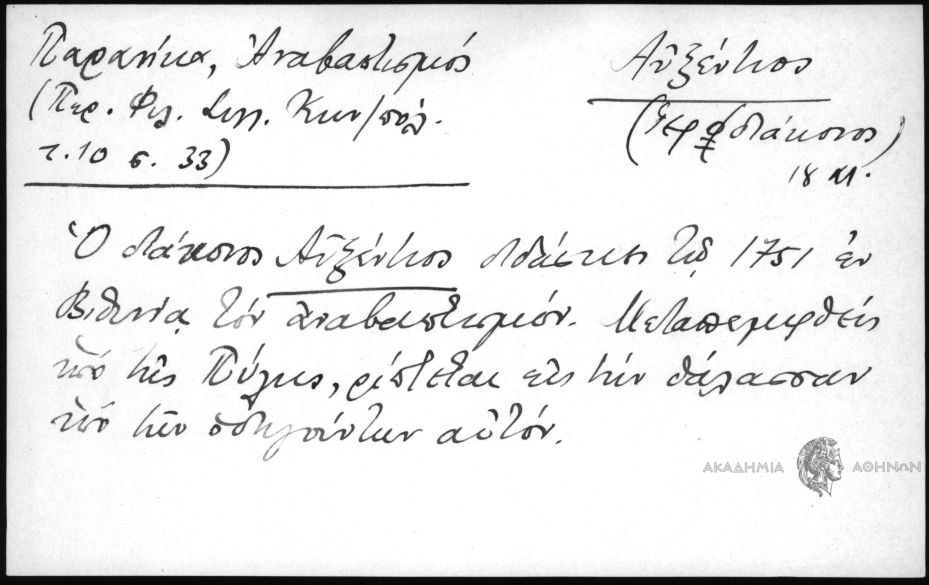 Παρανίκα, Ἀναβαπτισμός
(Περ. Φιλ. Συλλ. Κων/πόλ.
τ. 10 σ. 33)
Αὐξέντιος
(ἱεροδιάκονος)
18 αἰ.
Ὁ διάκονος Αὐξέντιος διδάσκει τῷ 1751 ἐν
Βιθυνίᾳ τὸν ἀναβαπτισμόν. Μεταπεμφθεὶς
ὑπὸ τῆς Πύλης, ρίπτεται εἰς τὴν θάλασσαν
ὑπὸ τῶν ὁδηγούντων αὐτόν.
ΑΚΑΔΗΜΙΑ ΑΘΗΝΩΝ